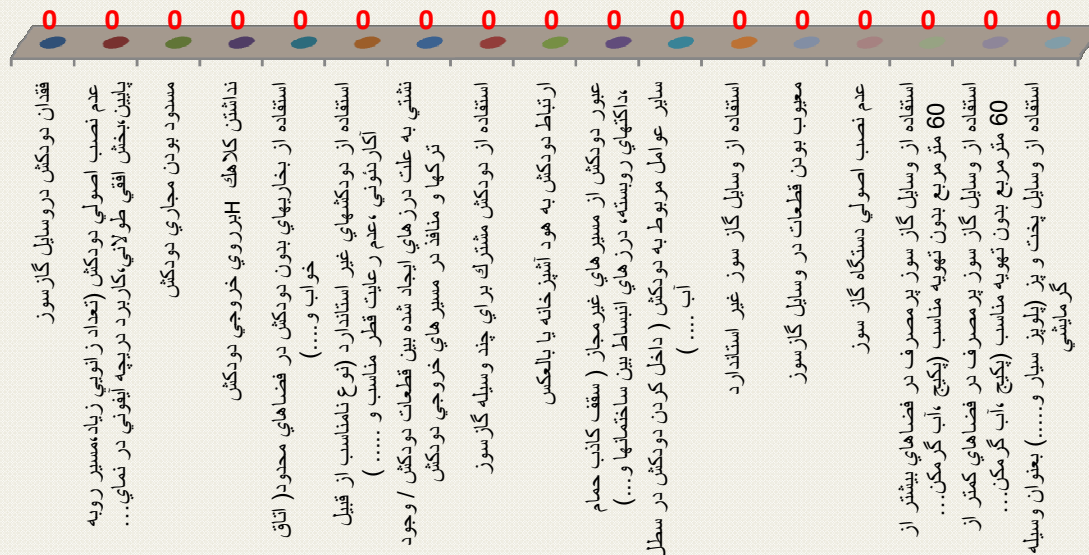 0 0 0 0 0 0 0 0 0 0 0 0 0 0 0 0 0
فقدان دودكش دروسايل گازسوز
عدم نصب اصولي دودكش (تعداد زانويي زياد،مسير روبه
پايين،بخش افقي طولاني،كاربرد دريچه آيفوني در نماي...
مسدود بودن مجاري دودكش
نداشتن كلاهك Hبرروي خروجي دودكش
استفاده از بخاريهاي بدون دودكش در فضاهاي محدود( اتاق
خواب و....)
استفاده از دودكشهاي غير استاندارد (نوع نامناسب از قبيل
آكاردئوني ،عدم رعايت قطر مناسب و ..... )
نشتي به علت درزهاي ايجاد شده بين قطعات دودكش / وجود
تركها و منافذ در مسيرهاي خروجي دودكش
استفاده از دودكش مشترك براي چند وسيله گازسوز
ارتباط دودكش به هود آشپزخانه يا بالعكس
عبور دودكش از مسيرهاي غيرمجاز ( سقف كاذب حمام
،داكتهاي روبسته، درزهاي انبساط بين ساختمانها و...)
ساير عوامل مربوط به دودكش ( داخل كردن دودكش در سطل
آب .... )
استفاده از وسايل گاز سوز غير استاندارد
معيوب بودن قطعات در وسايل گازسوز
عدم نصب اصولي دستگاه گاز سوز
استفاده از وسايل گاز سوز پرمصرف در فضاهاي بيشتر از
60 مترمربع بدون تهويه مناسب (پكيج ،آب گرمكن...
استفاده از وسايل گاز سوز پرمصرف در فضاهاي كمتر از
60 مترمربع بدون تهويه مناسب (پكيج ،آب گرمكن...
استفاده از وسايل پخت و پز (پلوپز سيار و.....) بعنوان وسيله
گرمايشي